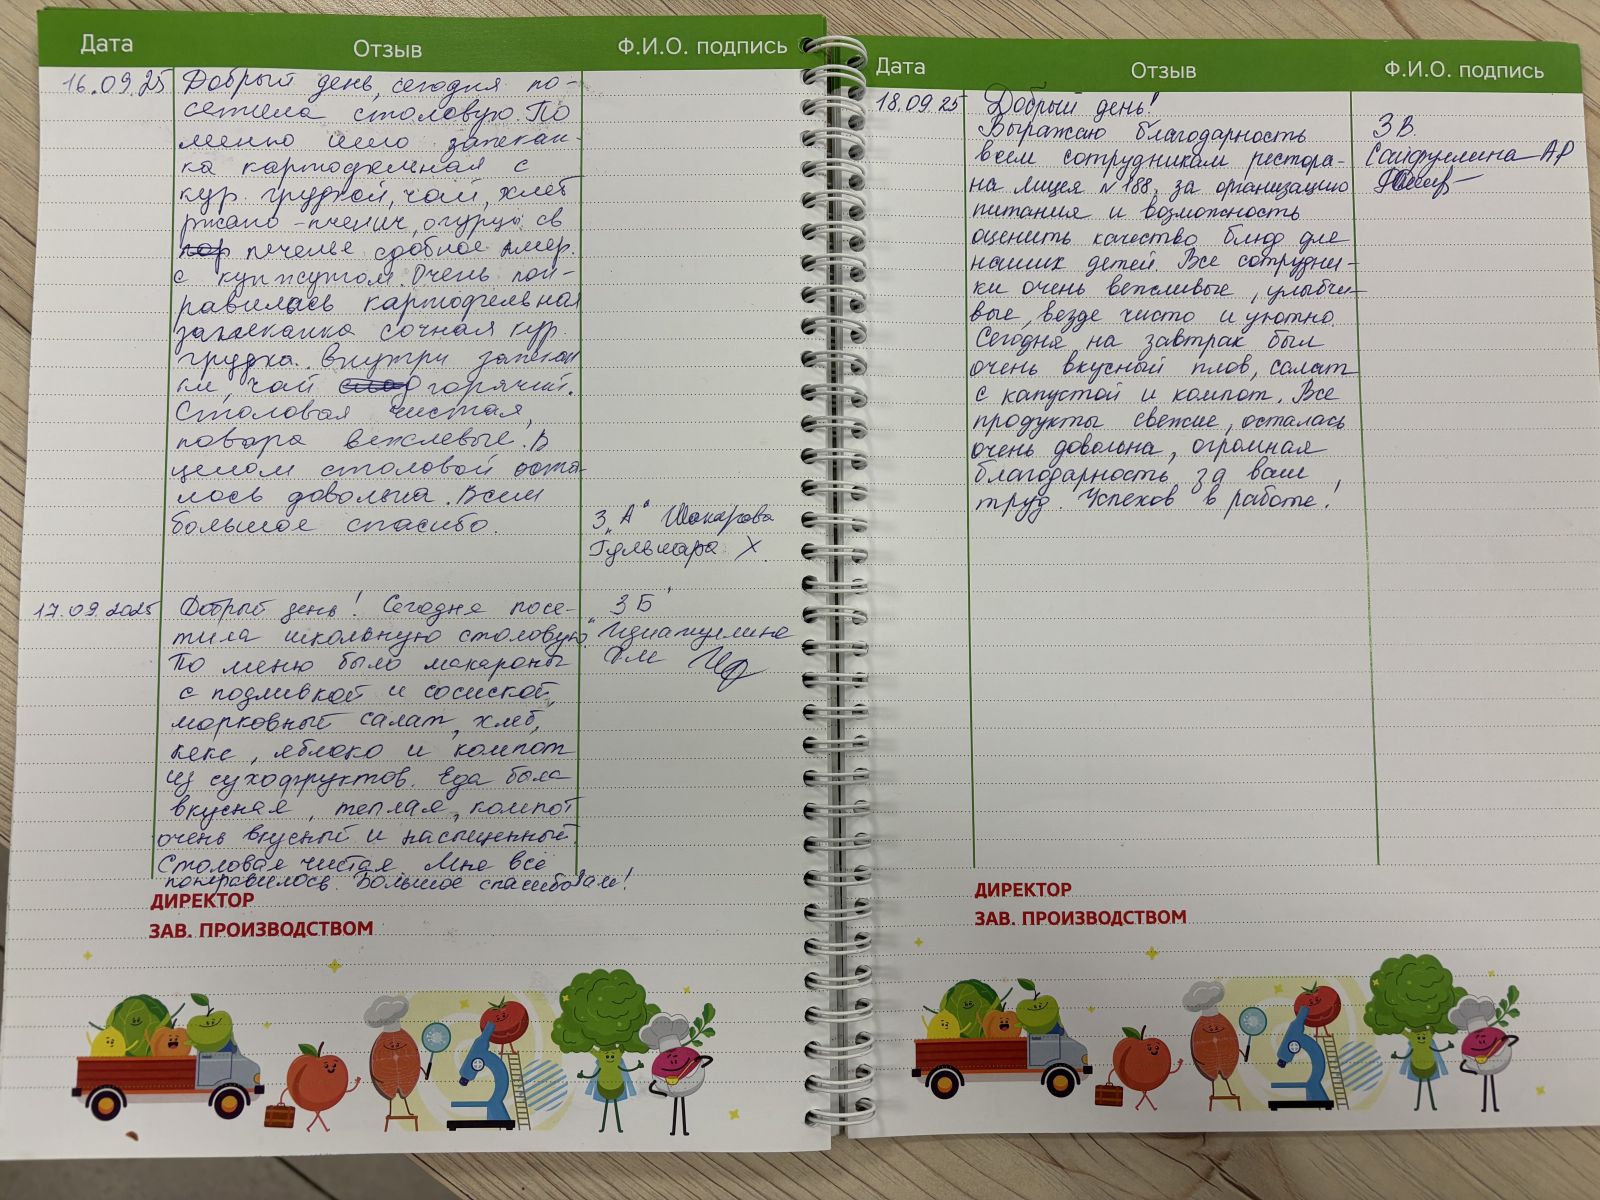 Дата Отзыв Ф.И.О. подпись
16.09.25 Добрый день, сегодня по-
сетила столовую. По
меню было запекан-
ка картофельная с
кур. грудкой, чай, хлеб
ржано-пшенич, огурцы св
печенье сдобное Амер.
с кунжутом. Очень пон-
равилась картофельная
запеканка сочная кур.
грудка. внутри запекан
ки, чай горячий.
Столовая чистая,
повара вежлевые. В
целом столовой оста-
лось довольна. Всем
большое спасибо.
3 "А" Шакирова
Гульнара Х
17.09.2025 Добрый день! Сегодня посе-
тила школьную столовую.
По меню было макароны
с подливкой и сосиской,
морковный салат, хлеб,
кекс, яблоко и компот
из сухофруктов. Еда была
вкусная, теплая, компот
очень вкусный и насыщенный.
Столовая чистая. Мне все
понравилось. Большое спасибо Вам!
"3 Б"
ДИРЕКТОР
ЗАВ. ПРОИЗВОДСТВОМ
Дата Отзыв Ф.И.О. подпись
18.09.25 Добрый день!
Выражаю благодарность
всем сотрудникам рестора-
на лицея №188, за организацию
питания и возможность
оценить качество блюд для
наших детей. Все сотрудни-
ки очень вежливые, улыбчи-
вые, везде чисто и уютно.
Сегодня на завтрак был
очень вкусный плов, салат
с капустой и компот. Все
продукты свежие, осталась
очень довольна, огромная
благодарность за ваш
труд. Успехов в работе!
3 В.
Сайфуллина АР
ДИРЕКТОР
ЗАВ. ПРОИЗВОДСТВОМ